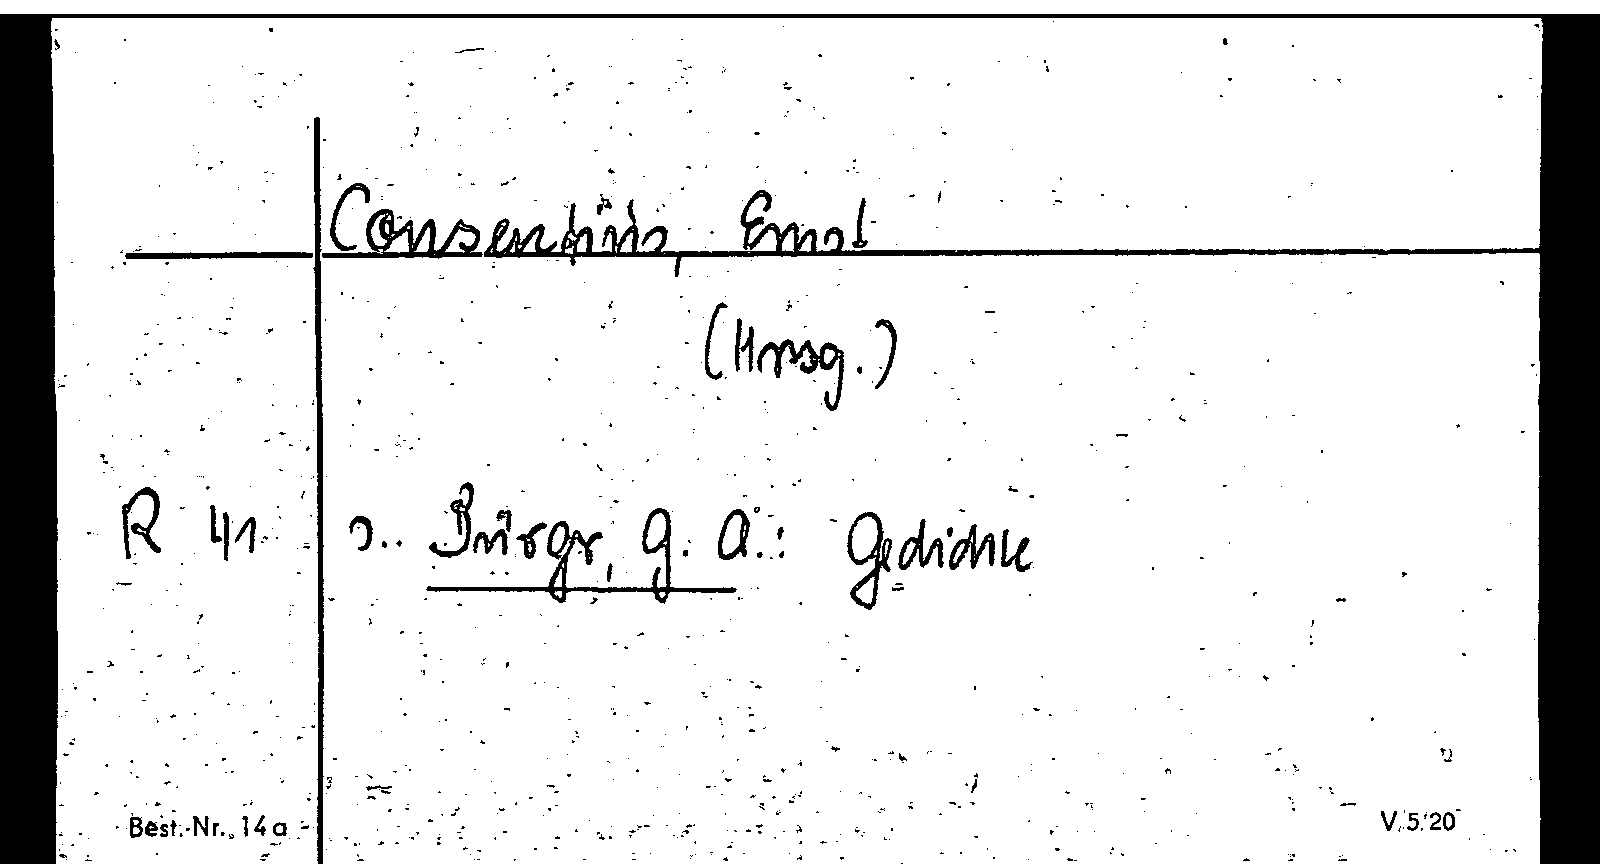 Consentius, Ernst
(Hrsg.)
R 41 s.. Bürger, G. A.: Gedichte
Best.-Nr. 14a
V. 5. 20